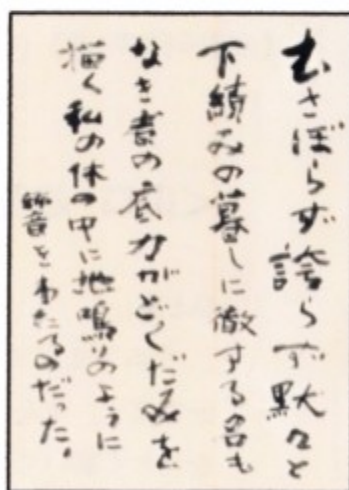 むさぼらず誇らず黙々と
下積みの暮しに徹する名も
なき者の底力がどくだみを
描く私の体の中に地鳴りのように
をわたるのだった。